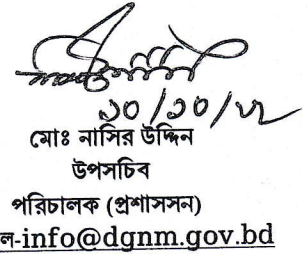 ১০/১০/২২
মোঃ নাসির উদ্দিন
উপসচিব
পরিচালক (প্রশাসসন)
ল-info@dgnm.gov.bd